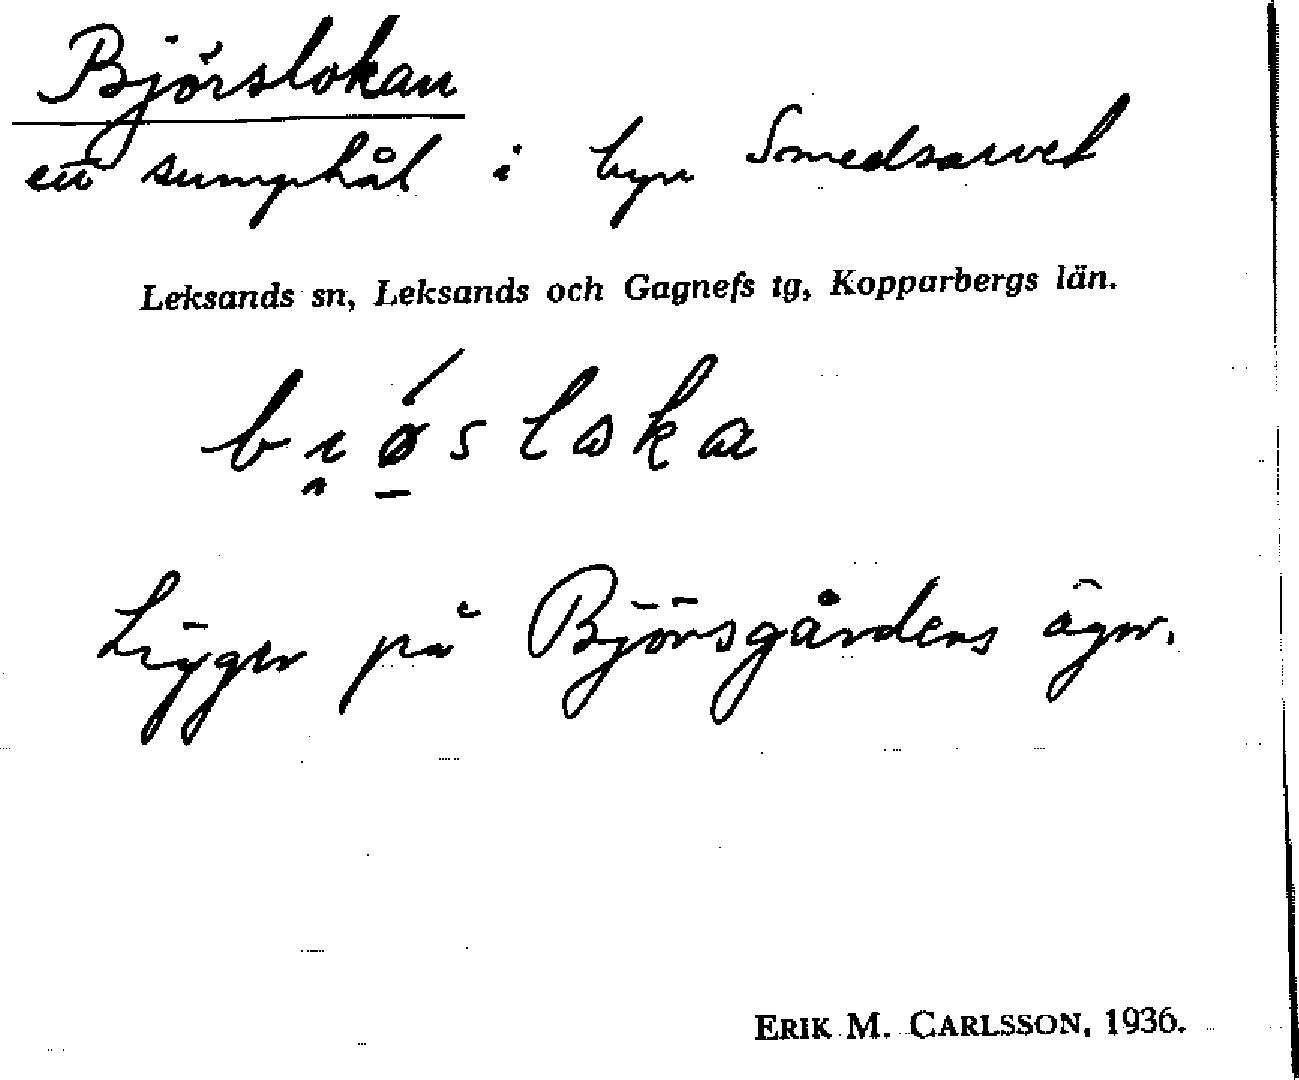 Björslokan
ett sumphål i byn Smedsarvet
Leksands sn, Leksands och Gagnefs tg, Kopparbergs län.
bı̯ǿ̠slɷka
Ligger på Björsgårdens ägor.
ERIK M. CARLSSON, 1936.